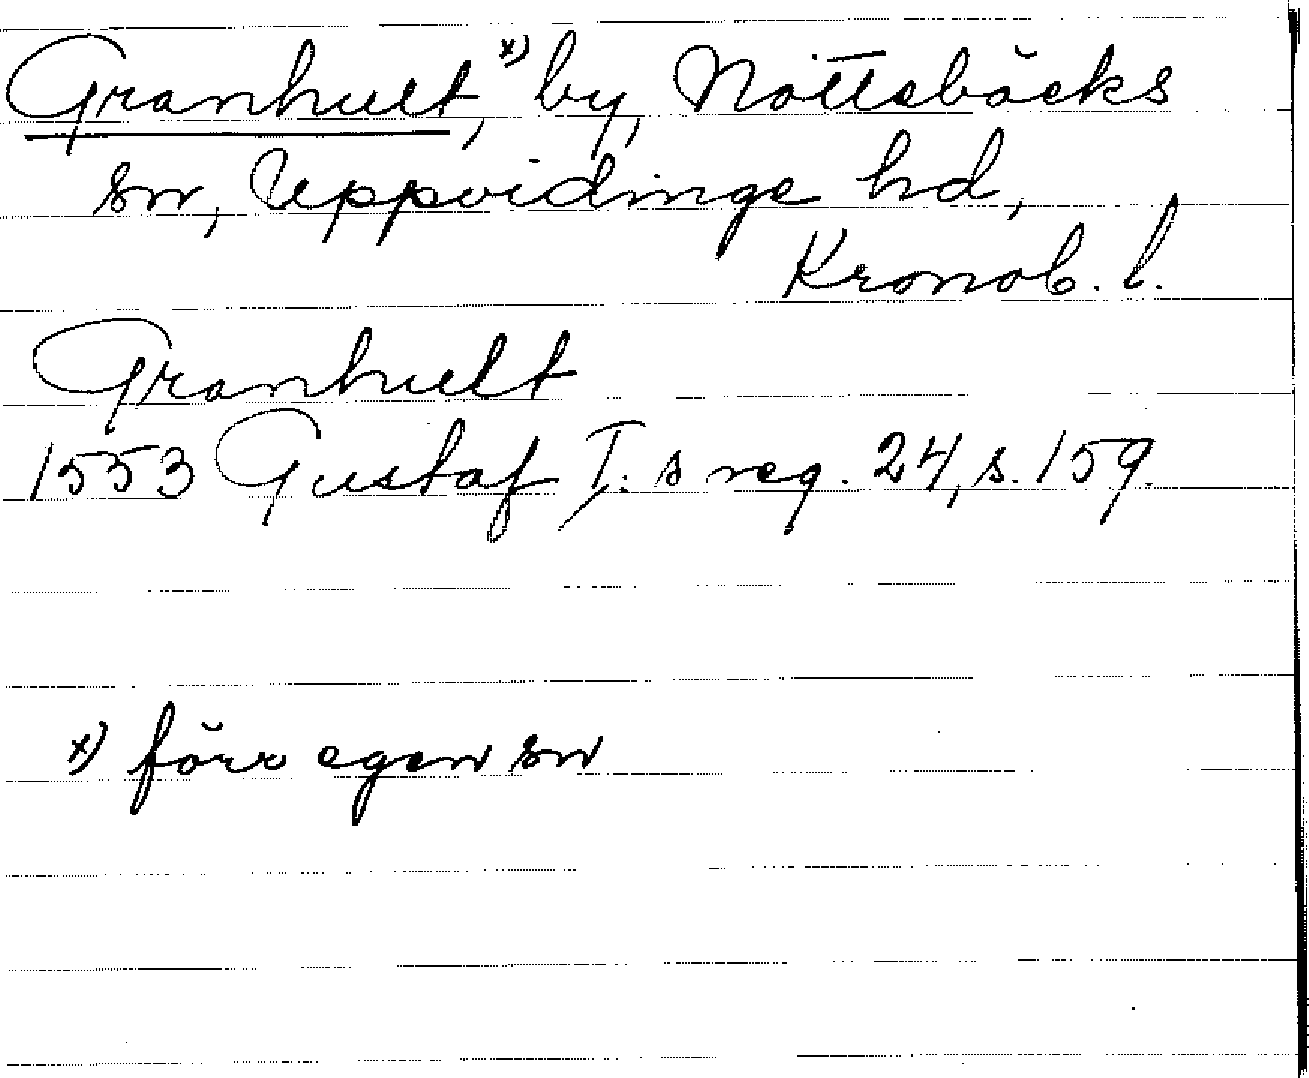 Granhult,ˣ⁾ by, Nöttebäcks
sn, Uppvidinge hd,
Kronob. l.
Granhult
1553 Gustaf I:s reg. 24, s. 159.
x) förr egen sn